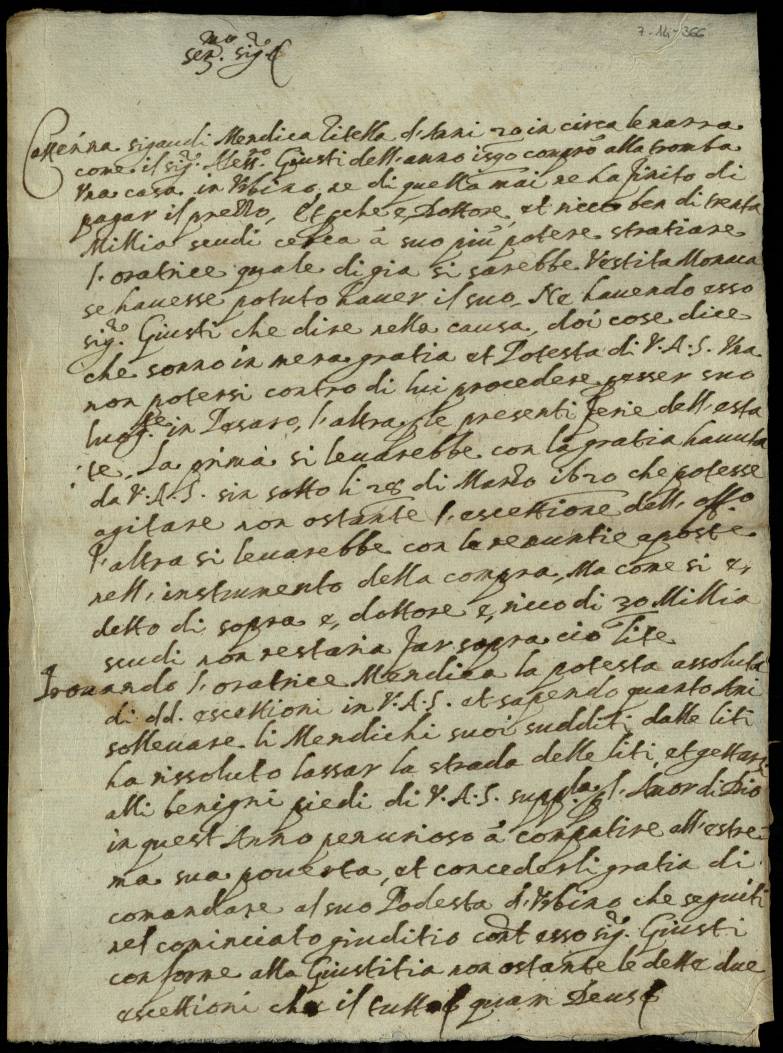 7-14-366
Ser.mo Sig.re
Catterina sigaudi Mendica Zitella d'Anni 20 in circa le narra
come il sig.r Aless.ro Giusti dell'anno 1590 comprò alla tromba
Una casa in Urbino, ne di quella mai ne ha finito di
pagar il prezzo, Et che è, Dottore, et ricco ben di trenta
Millia scudi cerca à suo più potere stratiare
l'oratrice quale di già si sarebbe Vestita Monaca
se havesse potuto haver il suo. Ne havendo esso
sig.re Giusti che dire nella causa, doi cose dice
che sonno in mera gratia et Potestà di V.A.S. Una
non potersi contro di lui procedere p esser suo
luog.te in Pesaro, l'altra, le presenti ferie dell'esta
te. La prima si levarebbe con la gratia havuta
da V.A.S. sin sotto li 28 di Marzo 1620 che potesse
agitare non ostante l'escettione dell'off.o
l'altra si levarebbe con le renuntie aposte
nell'instrumento della compra, Ma come si è,
detto di sopra è, dottore è, ricco di 30 Millia
scudi non restaria far sopra ciò lite
Trovando l'oratrice Mendica la potestà assoluta
di dd. escettioni in V.A.S. et sapendo quanto Ami
sollevare li Mendichi suoi sudditi dalle liti
ha rissoluto lassar la strada delle liti, et gettarsi
alli benigni piedi di V.A.S. suppl.la p l'Amor di Dio
in quest'Anno penurioso à compatire all'estre-
ma sua povertà, et concederli gratia di
comandare al suo Podestà d'Urbino che seguiti
nel cominciato giuditio cont esso sig.r Giusti
conforme alla Giustitia non ostante le dette due
escettioni che il tutto quam Deus